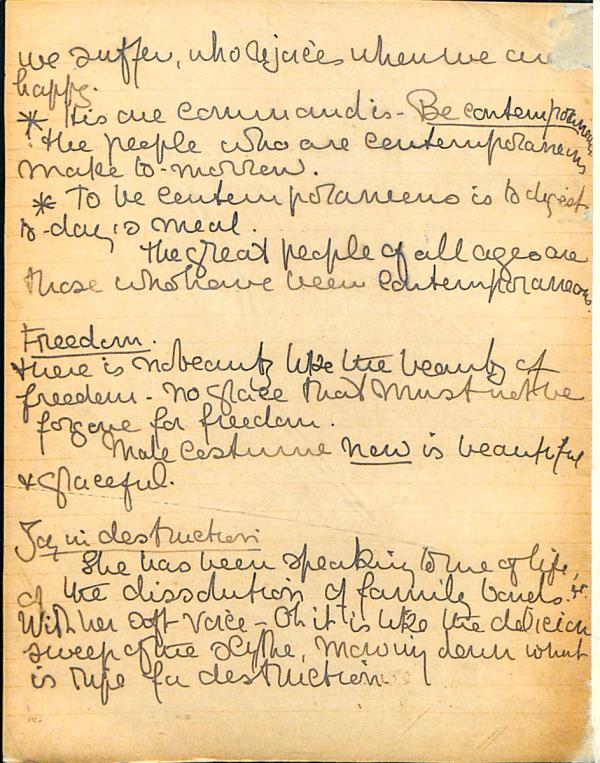 we suffer, who rejoices when we are
happy.
* His one command is - Be contemporaneous
! the people who are contemporaneous
make to-morrow.
* To be contemporaneous is to digest
to-day's meal.
The great people of all ages are
those who have been contemporaneous.
Freedom.
there is no beauty like the beauty of
freedom - no grace that must not be
forgone for freedom.
Male costume now is beautiful
& graceful.
Joy in destruction
She has been speaking to me of life,
of the dissolution of family bonds &c.
With her soft voice - Oh it is like the delicious
sweep of the scythe, mowing down what
is ripe for destruction.